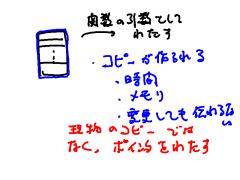 関数の引数として
わたす
・コピーが作られる
・時間
・メモリ
・変更しても伝わらない
現物のコピーでは
なく、ポインタをわたす